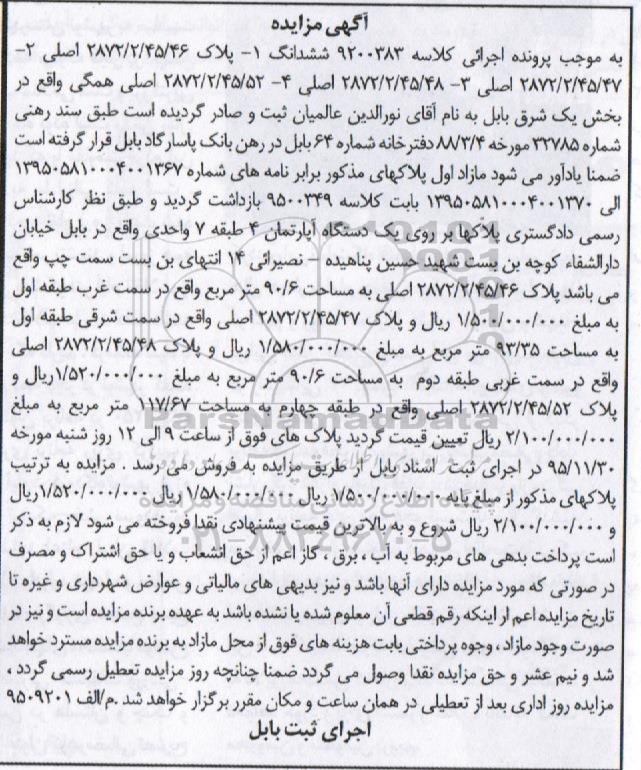 آگهی مزایده
به موجب پرونده اجرائی کلاسه ۹۲۰۰۳۸۳ ششدانگ ۱- پلاک ۲۸۷۲/۲/۴۵/۴۶ اصلی ۲-
۲۸۷۲/۲/۴۵/۴۷ اصلی ۳- ۲۸۷۲/۲/۴۵/۴۸ اصلی ۴- ۲۸۷۲/۲/۴۵/۵۲ اصلی همگی واقع در
بخش یک شرق بابل به نام آقای نورالدین عالمیان ثبت و صادر گردیده است طبق سند رهنی
شماره ۳۲۷۸۵ مورخه ۸۸/۳/۴ دفترخانه شماره ۶۴ بابل در رهن بانک پاسارگاد بابل قرار گرفته است
ضمنا یادآور می شود مازاد اول پلاکهای مذکور برابر نامه های شماره ۱۳۹۵۰۵۸۱۰۰۰۴۰۰۱۳۶۷
الی ۱۳۹۵۰۵۸۱۰۰۰۴۰۰۱۳۷۰ بابت کلاسه ۹۵۰۰۳۴۹ بازداشت گردید و طبق نظر کارشناس
رسمی دادگستری پلاکها بر روی یک دستگاه آپارتمان ۴ طبقه ۷ واحدی واقع در بابل خیابان
دارالشفاء کوچه بن بست شهید حسین پناهیده – نصیرائی ۱۴ انتهای بن بست سمت چپ واقع
می باشد پلاک ۲۸۷۲/۲/۴۵/۴۶ اصلی به مساحت ۹۰/۶ متر مربع واقع در سمت غرب طبقه اول
به مبلغ ۱/۵۰۰/۰۰۰/۰۰۰ ریال و پلاک ۲۸۷۲/۲/۴۵/۴۷ اصلی واقع در سمت شرقی طبقه اول
به مساحت ۹۳/۳۵ متر مربع به مبلغ ۱/۵۸۰/۰۰۰/۰۰۰ ریال و پلاک ۲۸۷۲/۲/۴۵/۴۸ اصلی
واقع در سمت غربی طبقه دوم به مساحت ۹۰/۶ متر مربع به مبلغ ۱/۵۲۰/۰۰۰/۰۰۰ ریال و
پلاک ۲۸۷۲/۲/۴۵/۵۲ اصلی واقع در طبقه چهارم به مساحت ۱۱۷/۶۷ متر مربع به مبلغ
۲/۱۰۰/۰۰۰/۰۰۰ ریال تعیین قیمت گردید پلاک های فوق از ساعت ۹ الی ۱۲ روز شنبه مورخه
۹۵/۱۱/۳۰ در اجرای ثبت اسناد بابل از طریق مزایده به فروش می رسد . مزایده به ترتیب
پلاکهای مذکور از مبلغ پایه ۱/۵۰۰/۰۰۰/۰۰۰ ریال ۱/۵۸۰/۰۰۰/۰۰۰ ریال ۱/۵۲۰/۰۰۰/۰۰۰ ریال
و ۲/۱۰۰/۰۰۰/۰۰۰ ریال شروع و به بالاترین قیمت پیشنهادی نقدا فروخته می شود لازم به ذکر
است پرداخت بدهی های مربوط به آب ، برق ، گاز اعم از حق انشعاب و یا حق اشتراک و مصرف
در صورتی که مورد مزایده دارای آنها باشد و نیز بدیهی های مالیاتی و عوارض شهرداری و غیره تا
تاریخ مزایده اعم از اینکه رقم قطعی آن معلوم شده یا نشده باشد به عهده برنده مزایده است و نیز در
صورت وجود مازاد ، وجوه پرداختی بابت هزینه های فوق از محل مازاد به برنده مزایده مسترد خواهد
شد و نیم عشر و حق مزایده نقدا وصول می گردد ضمنا چنانچه روز مزایده تعطیل رسمی گردد ،
مزایده روز اداری بعد از تعطیلی در همان ساعت و مکان مقرر برگزار خواهد شد .م/الف ۹۵۰۹۲۰۱
اجرای ثبت بابل
ParsNamadData
۰۲۱-۸۸۳۴۹۶۷۰-۵